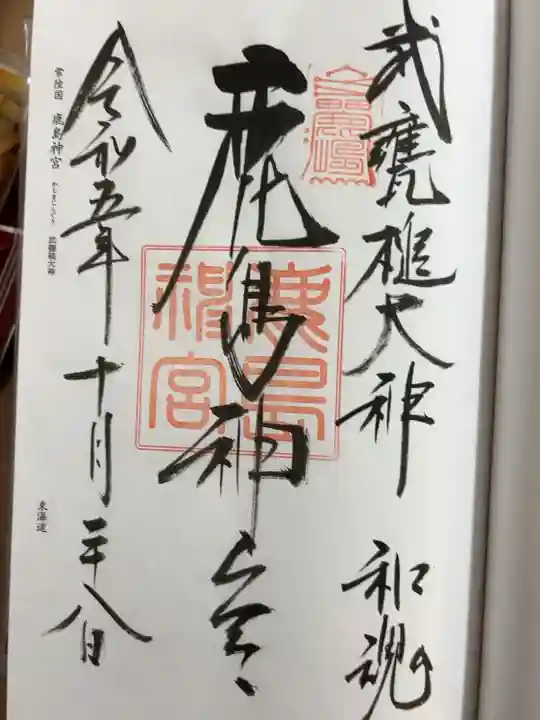 武甕槌大神 和魂
鹿嶋
鹿島神宮
鹿島神宮
令和五年十月二十八日
常陸国 鹿島神宮 かしまじんぐう 武甕槌大神
東海道